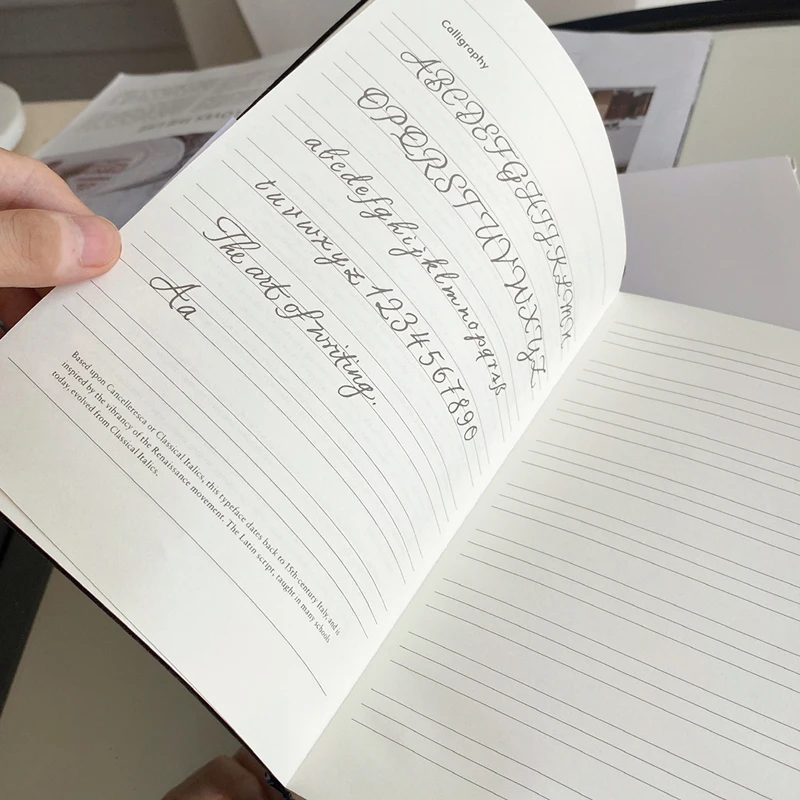 Calligraphy
ABCDEFGHIJKLMN
OPQRSTUVWXYZ
abcdefghijklmnopqrsß
tuvwxyz 1234567890
The art of writing.
Aa
Based upon Cancelleresca or Classical Italics, this typeface dates back to 15th-century Italy, and is
inspired by the vibrancy of the Renaissance movement. The Latin script, taught in many schools
today, evolved from Classical Italics.